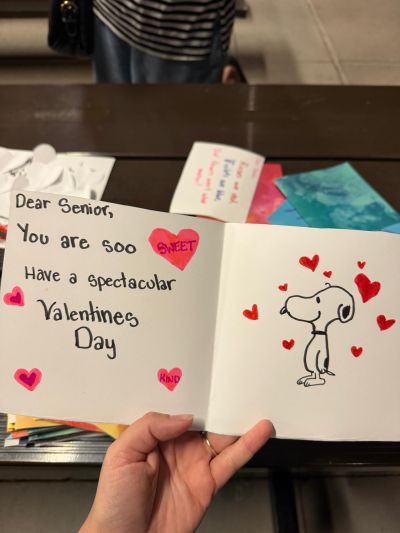 Dear Senior,
You are soo SWEET
Have a spectacular
Valentines
Day
KIND